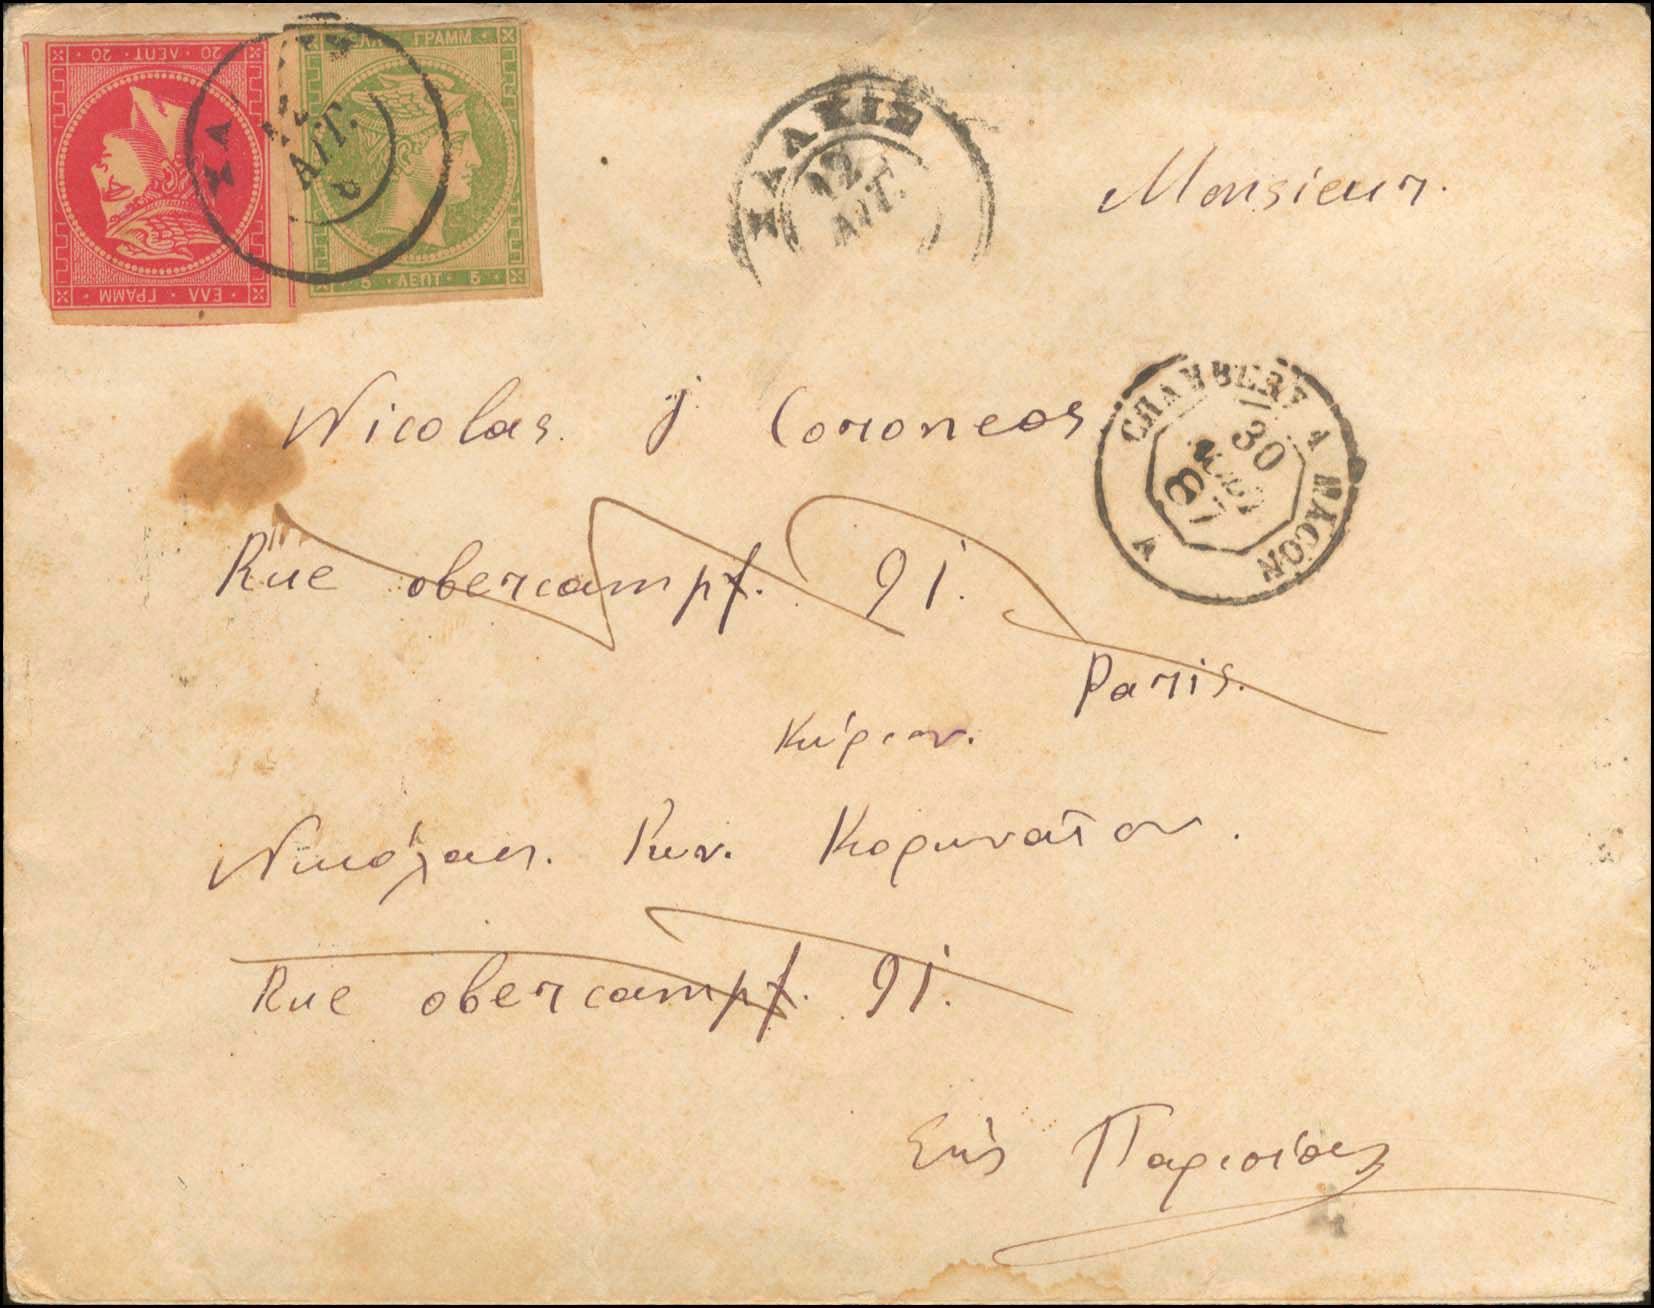 20 · ΛΕΠΤ · 20
ΕΛΛ ΓΡΑΜΜ
ΕΛΛ ΓΡΑΜΜ
5 · ΛΕΠΤ · 5
ΑΥΓ.
12
ΑΥΓ.
Monsieur.
CHAMBERY A MÂCON
30
87
A
Nicolas. J Coroneos
Rue obercampf. 91.
Paris.
Κύριον.
Νικόλαον. Κων.
Rue obercampf. 91.
Εις Παρισίους